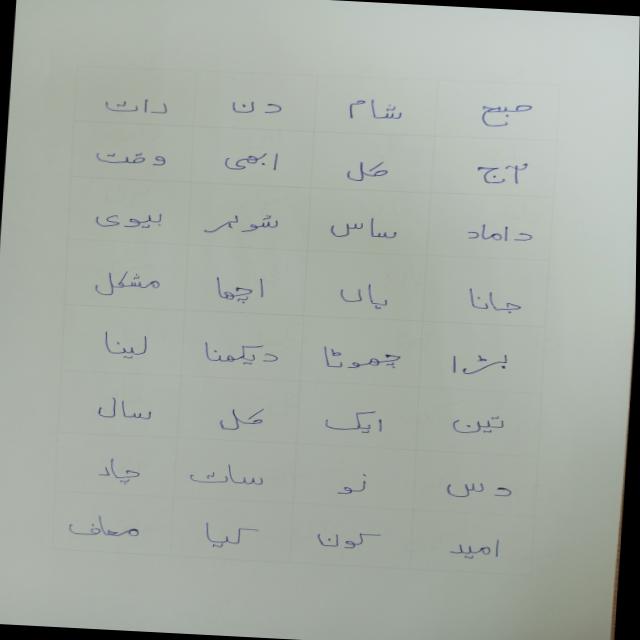 صبح شام دن رات
آج کل ابھی وقت
داماد ساس شوہر بیوی
جانا ہاں اچھا مشکل
بڑا چھوٹا دیکھنا لینا
تین ایک کل سال
دس نو سات چار
امید کون کیا معاف